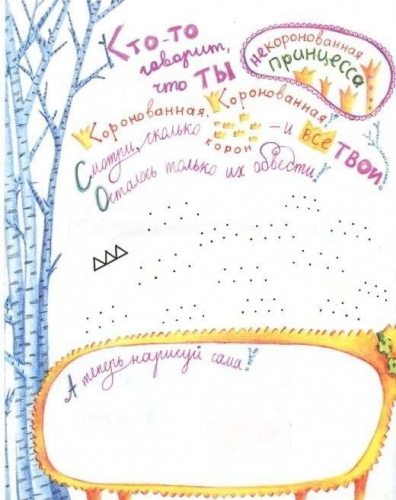 Кто-то
говорит,
что ТЫ
некоронованная
принцесса
Коронованная, Коронованная!
Смотри, сколько корон – и все твои!
Осталось только их обвести!
А теперь нарисуй сама!